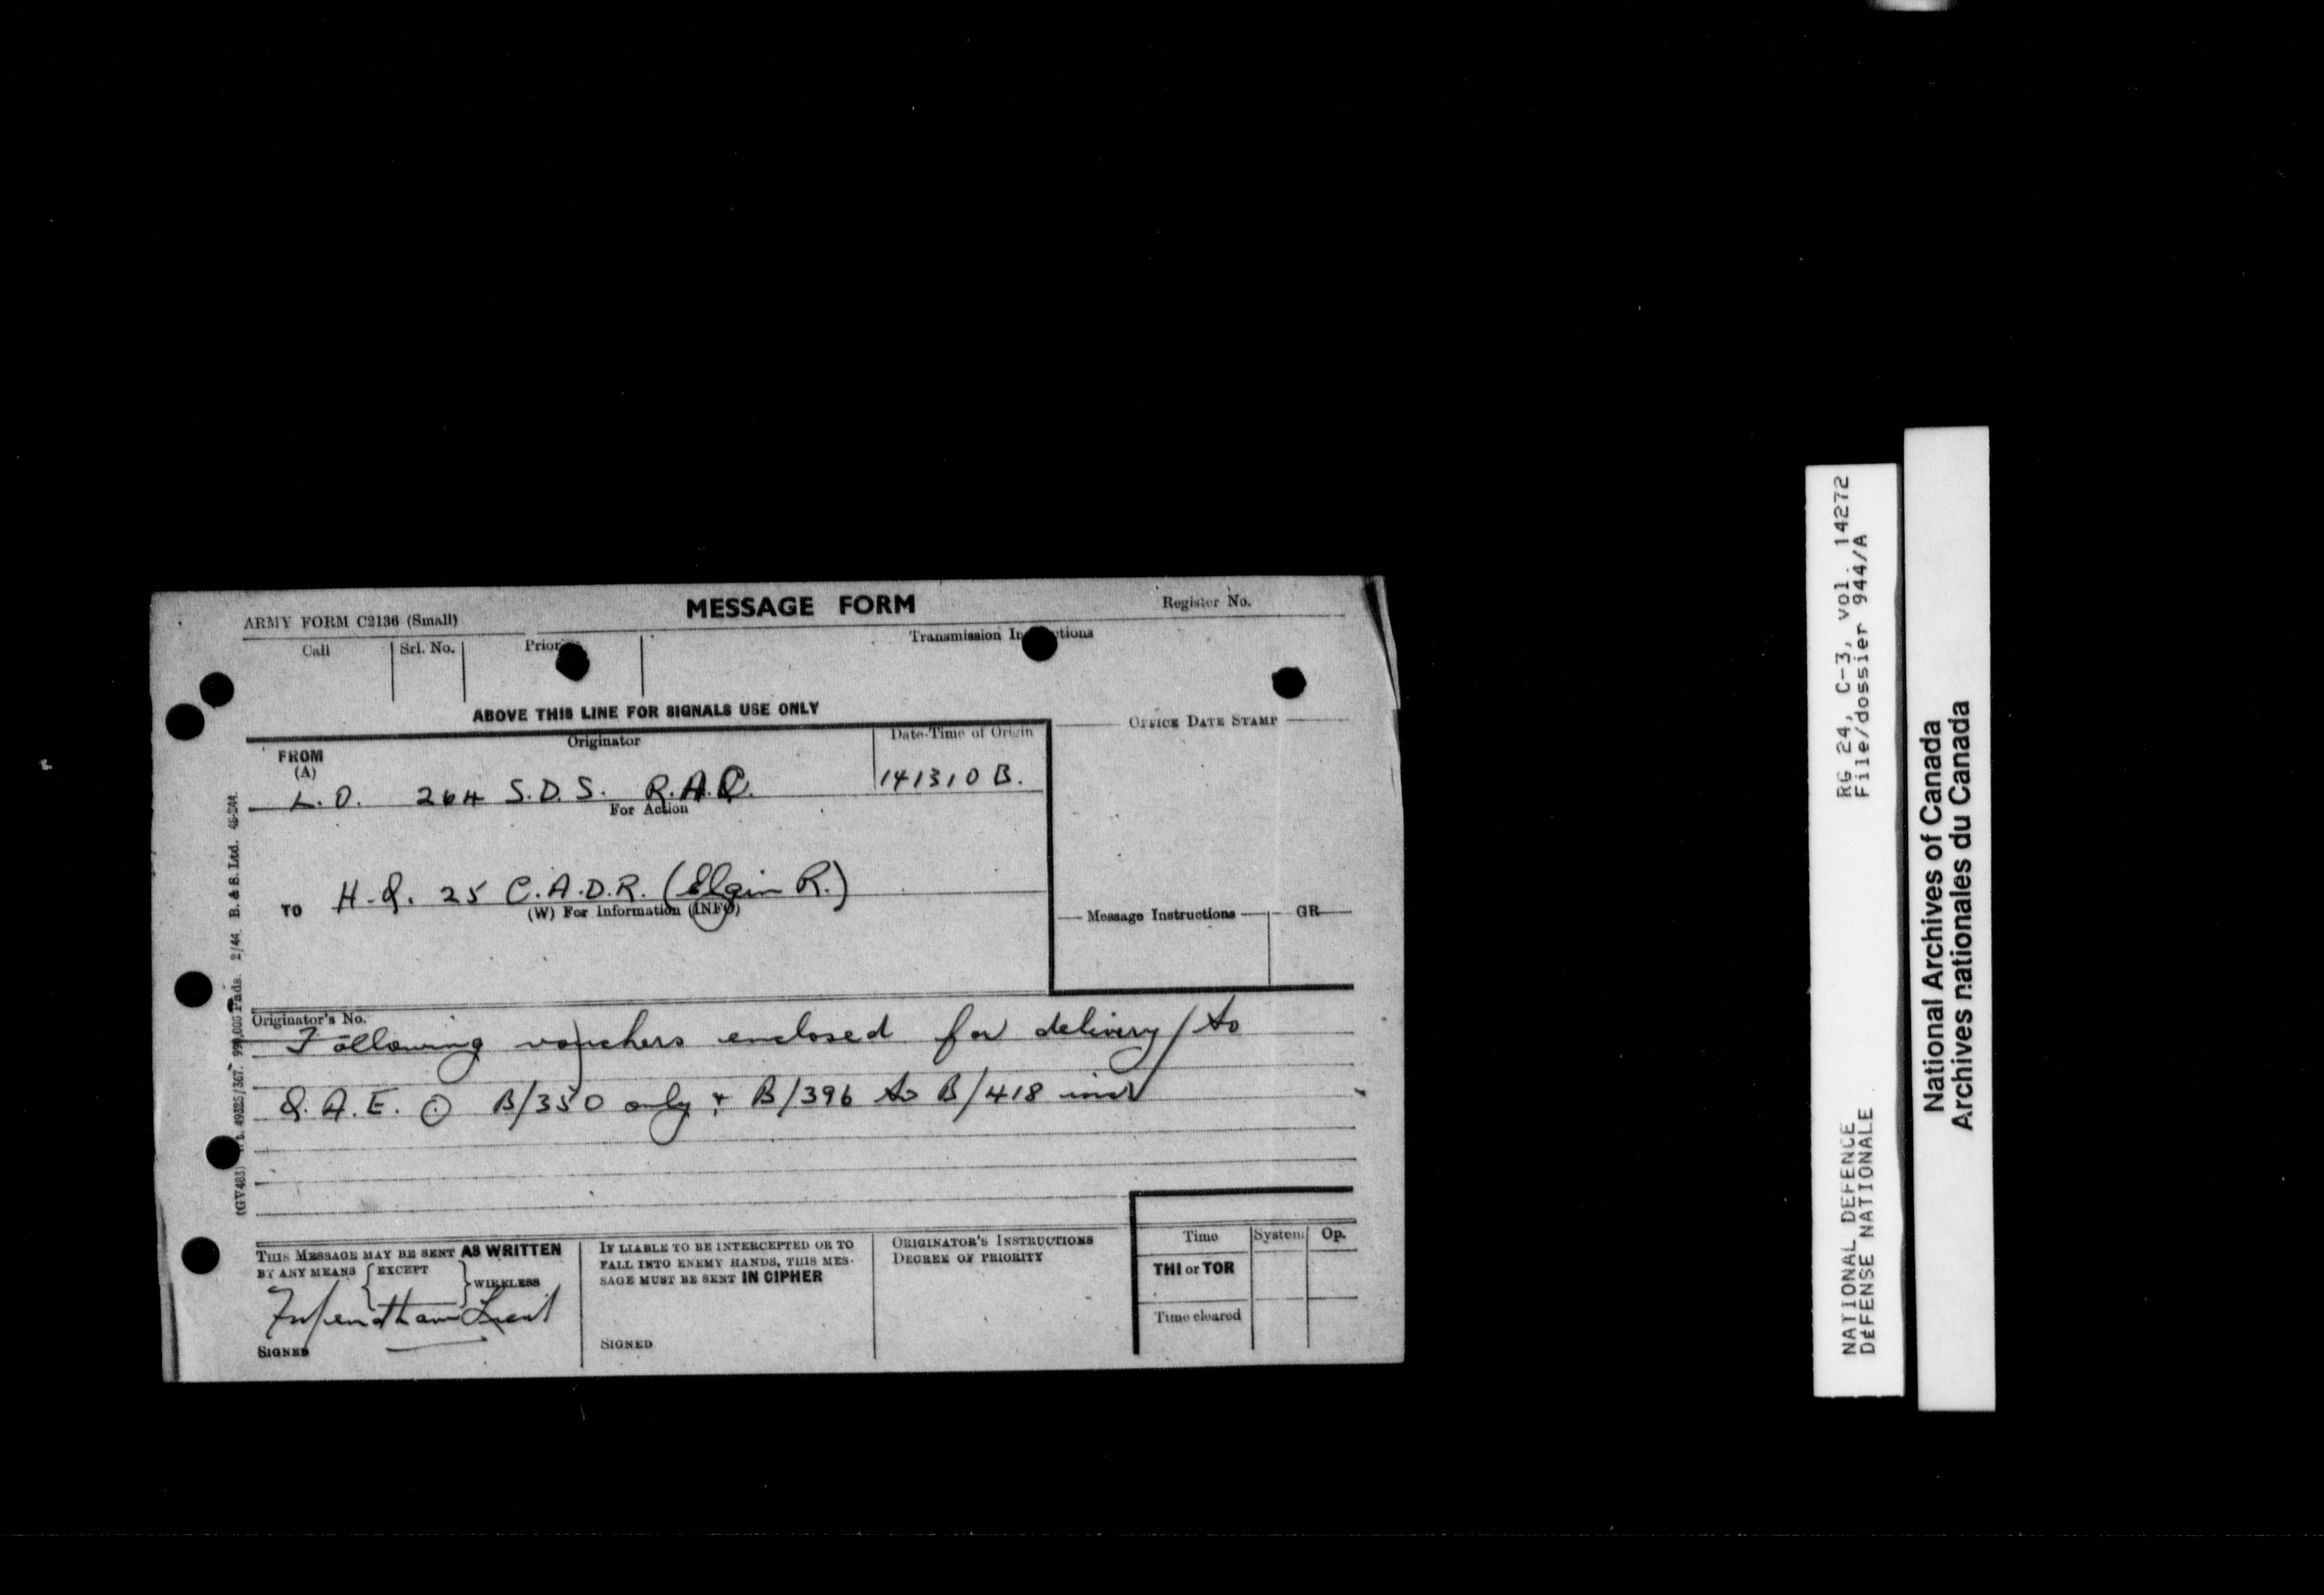 ARMY FORM C2136 (Small)
MESSAGE FORM
Register No.
Call
Srl. No.
Transmission
ABOVE THIS LINE FOR SIGNALS USE ONLY
FROM
(A)
Originator
Date-Time of Origin
OFFICE DATE STAMP
L.O. 264 S.D.S. R.A.C.
141310 B.
For Action
TO H.Q. 25 C.A.D.R. (Elgin R.)
(W) For Information (INFO)
Message Instructions
GR
Originator's No.
Following vouchers enclosed for delivery to
Q.A.E. B/350 only & B/396 to B/418 incl
THIS MESSAGE MAY BE SENT AS WRITTEN
BY ANY MEANS { EXCEPT } WIRELESS
Lieut
SIGNED
IF LIABLE TO BE INTERCEPTED OR TO
FALL INTO ENEMY HANDS, THIS MES-
SAGE MUST BE SENT IN CIPHER
SIGNED
ORIGINATOR'S INSTRUCTIONS
DEGREE OF PRIORITY
Time
System
Op.
THI or TOR
Time cleared
Pads. 2/44. B. & S. Ltd.
NATIONAL DEFENCE RG 24, C-3, vol. 14272
DÉFENSE NATIONALE File/dossier 944/A
National Archives of Canada
Archives nationales du Canada